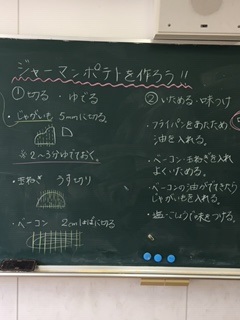 ジャーマンポテトを作ろう!!
① 切る・ゆでる
・じゃがいも 5mmに切る。
※2～3分ゆでておく。
・玉ねぎ うす切り
・ベーコン 2cmはばに切る
② いためる・味つけ
・フライパンをあたため
油を入れる。
・ベーコン・玉ねぎを入れ
よくいためる。
・ベーコンの油がでてきたら
じゃがいもを入れる。
・塩・こしょうで味をつける。